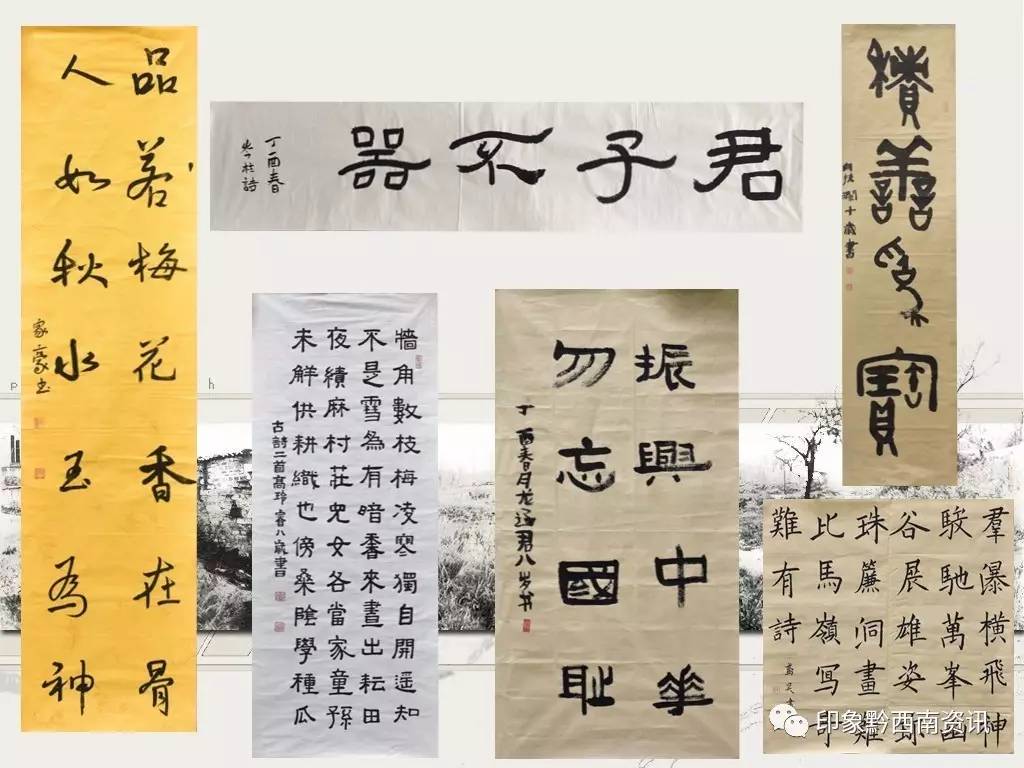 品若梅花香在骨
人如秋水玉為神
家豪书
君子不器
丁酉春
積善為寶
十歲書
牆角數枝梅凌寒獨自開遥知
不是雪為有暗香來晝出耘田
夜績麻村莊兒女各當家童孫
未解供耕織也傍桑陰學種瓜
古詩二首高玲睿八歲書
振興中華
勿忘國耻
丁酉春月龙君八岁书
羣瀑橫飛神
駿馳萬峯幽
谷展雄姿珍
珠簾洞畫難
比馬嶺写奇
難有詩
印象黔西南资讯